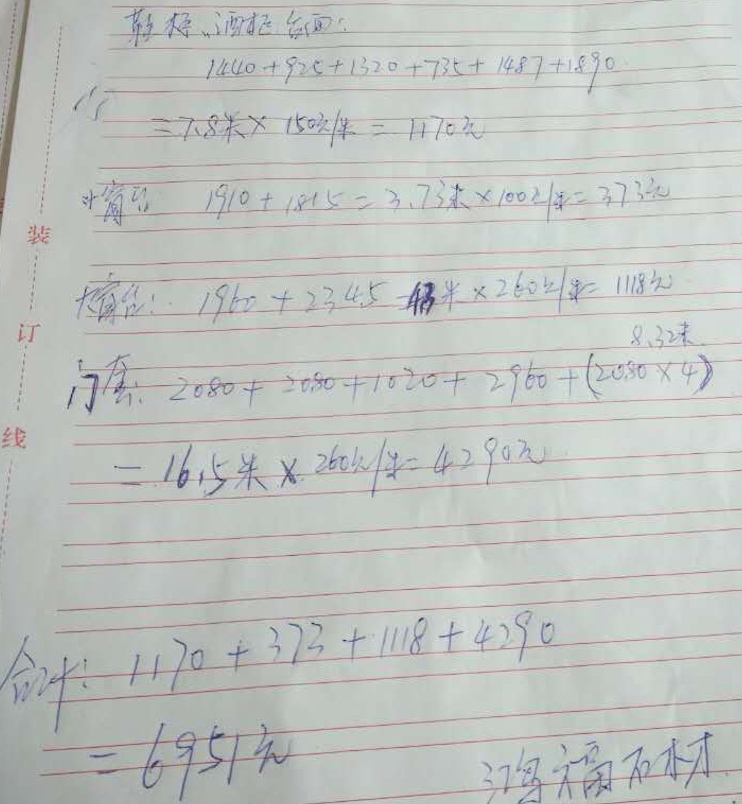 鞋柜、酒柜台面:
1440+925+1320+735+1487+1890
=7.8米×150元/米=1170元
小窗台 1910+1815=3.73米×100元/米=373元
装
大窗台: 1960+2345=4.3米×260元/米=1118元
订
8.32米
门套: 2080+2080+1020+2960+(2080×4)
线
=16.5米×260元/米=4290元
合计: 1170+373+1118+4290
=6951元
鸿天福石材